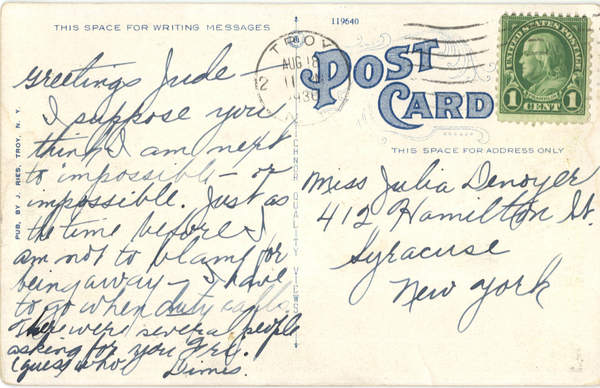 THIS SPACE FOR WRITING MESSAGES
119640
Greetings Jude —
I suppose you
thing I am next
to impossible – or
impossible. Just as
the time before I
am not to blame for
being away – I have
to go when duty calls.
There were several people
asking for you Fri.
(guess who) Dimes.
PUB. BY J. RIES, TROY, N. Y.
TICHNOR QUALITY VIEWS
TROY
AUG 18
11
1936
N.Y.
POST
CARD
UNITED STATES POSTAGE
FRANKLIN
1 CENT 1
THIS SPACE FOR ADDRESS ONLY
Miss Julia Denoyer
412 Hamilton St.
Syracuse
New York